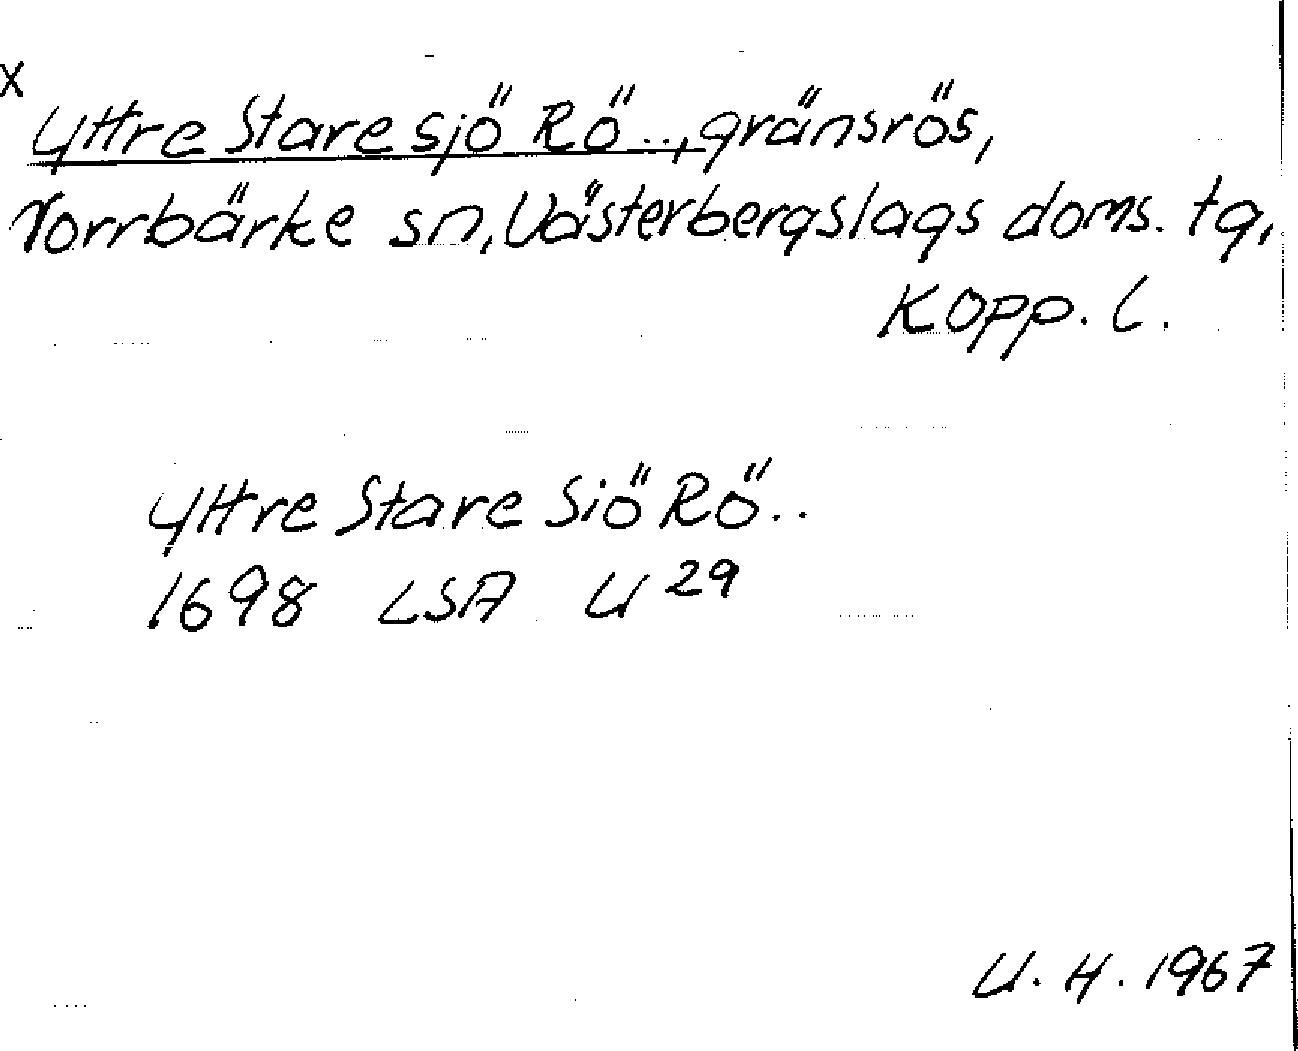 x
Yttre Staresjö Rö.., gränsrös,
Norrbärke sn, Västerbergslags doms. tg,
Kopp. l.
Yttre Stare Siö Rö..
1698 LSA U 29
U. H. 1967